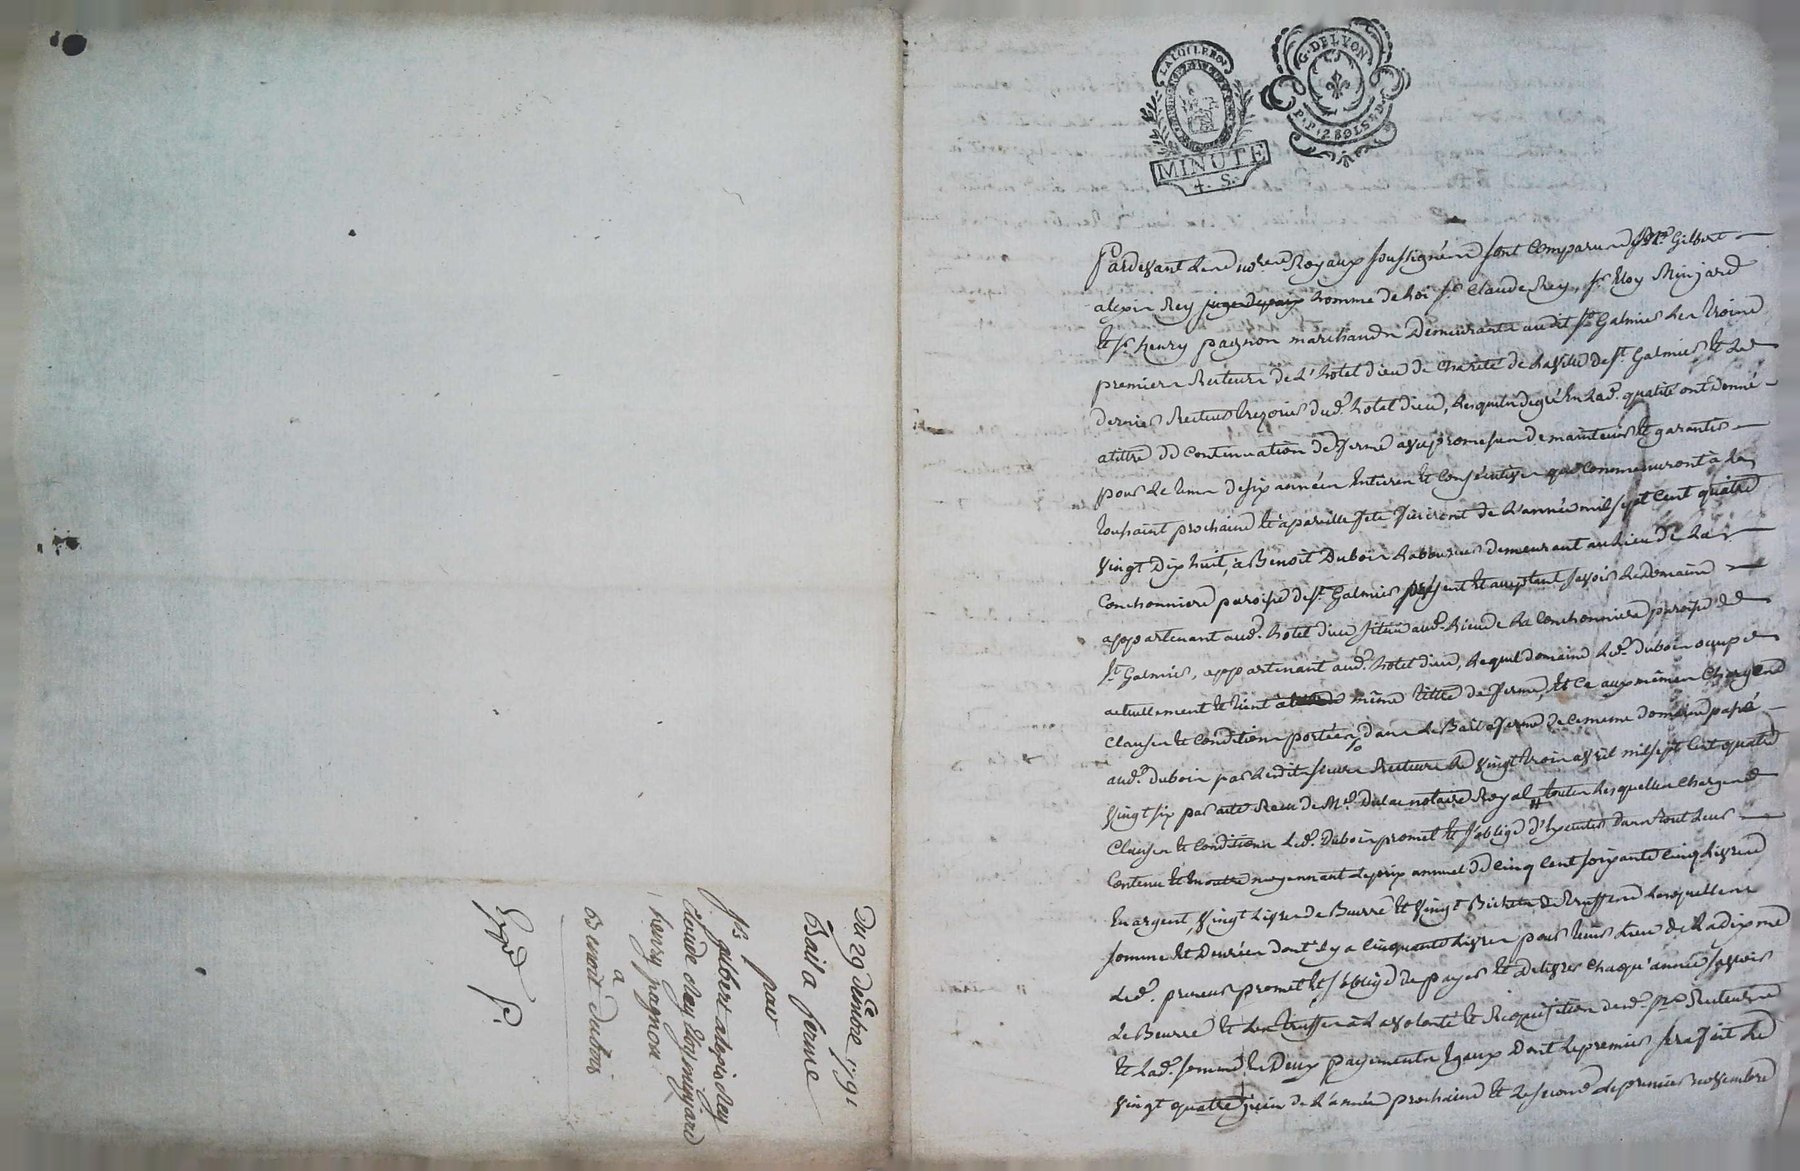 Du 29 décembre 1791
Bail a ferme
par
Srs gilbert alexis Rey
claude Rey, éloy minjard
henry pagnon
a
Benoît Dubois
LA LOI LE ROI
MINUTE
4. S.
G. DE LYON
P. P. 2 89 L S 4 D
Pardevant les nores Royaux soussignés sont comparus Sr Me Gilbert
alexis Rey juge de paix homme de loi sr Claude Rey, sr Eloy Minjard
et sr henry pagnon marchands demeurants audit St Galmier les trois
premiers Recteurs de L'hotel dieu de charité de la ville de St Galmier et Le
dernier Recteur trezorier dud. hotel dieu, lesquels de gré en lad. qualité ont donné
a tittre de continuation de ferme avec promesses de maintenir et garantir
pour le tems de six années entieres et consécutives que commenceront à la
toussaint prochaine et à pareille fete finiront de L'année mil sept cent quatre
vingt dix huit, à Benoit Dubois Laboureur demeurant au lieu de la
Conchonniere paroisse de St Galmier présent et acceptant savoir le domaine
appartenant aud. hotel dieu situé aud. lieu de La Conchonniere paroisse de
St Galmier, appartenant aud. hotel dieu, lequel domaine led. dubois occupe
actuellement et tient à même tittre de ferme, et ce aux mêmes charges
clauses et conditions portées dans le Bail a ferme de ce meme domaine passé
aud. dubois par lesdits sieurs Recteurs le vingt trois avril mil sept cent quatre
vingt six par acte Recu de Me dulac notaire Royal toutes lesquelles charges
clauses et conditions led. Dubois promet et s'oblige d'executer dans tout leur
contenu et en outre moyennant le prix annuel de cinq cent soixante cinq livres
en argent, vingt livres de Beurre et vingt Bichets de truffes lesquelles
somme et denrées dont il y a cinquante livres pour tenir lieu de la dixme
led. preneur promet et s'oblige de payer et delivrer chaqu'année savoir
le Beurre et les truffes à la volonté et Requisition desd. srs Recteurs
et lad. somme en Deux payements egaux dont le premier sera fait le
vingt quatre juin de l'année prochaine et le second le premier novembre